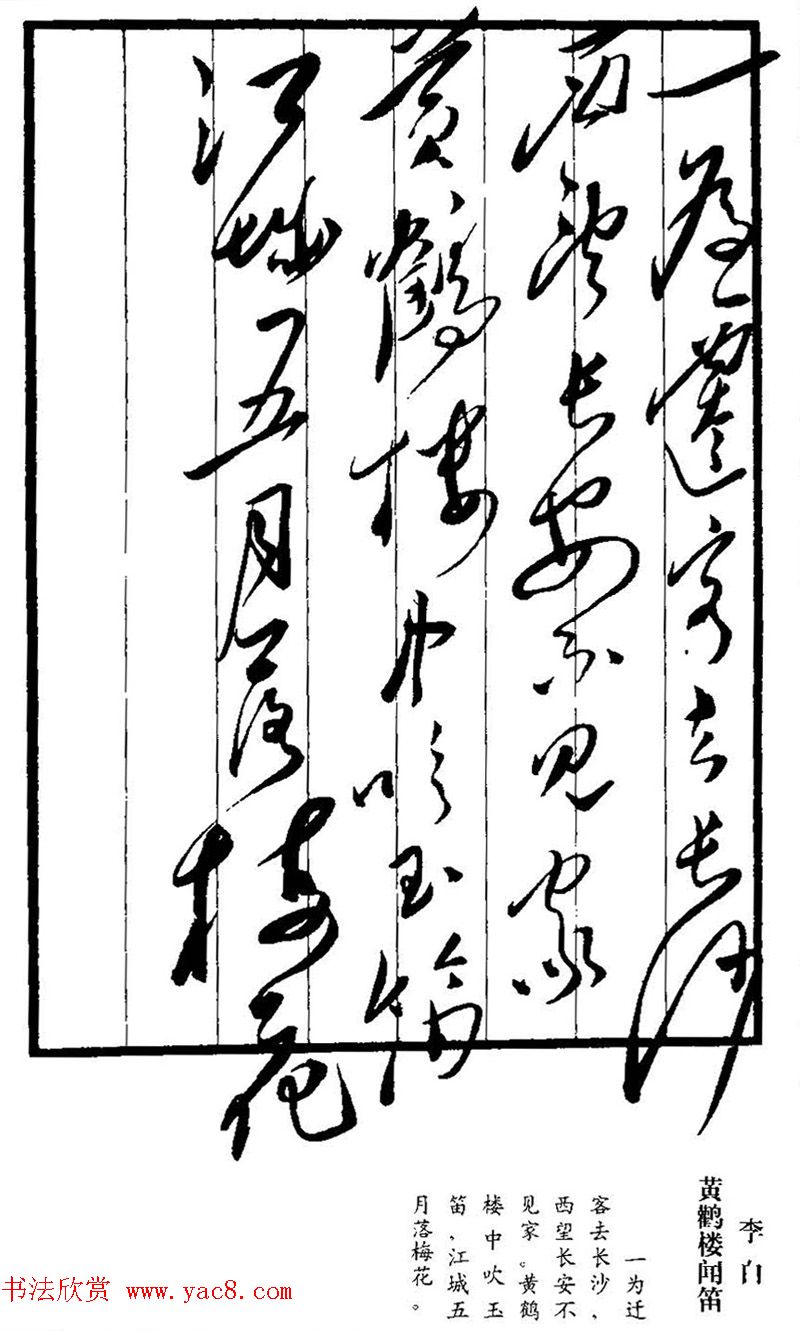 一為遷客去長沙
西望長安不見家
黃鶴樓中吹玉笛
江城五月落梅花
李白
黄鹳楼闻笛
一为迁
客去长沙，
西望长安不
见家。黄鹤
楼中吹玉
笛，江城五
月落梅花。
书法欣赏 www.yac8.com